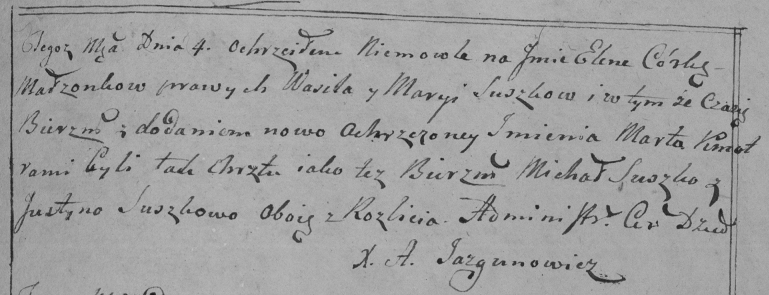 Tegoż Mca Dnia 4. ochrzciłem Niemowle na Jmie Elene Córkę
Małzonkow prawych Wasila y Maryi Suszkow i w tym że Czasię
Bierzm z dodaniem nowo ochrzczoney Imienia Marta Kmot
rami byli tak Chrztu iako tez Bierzm Michał Suszko z
Justyno Suszkowo oboię z Rozlicia. Administr. Cer Dzied
X. A. Jazgunowicz